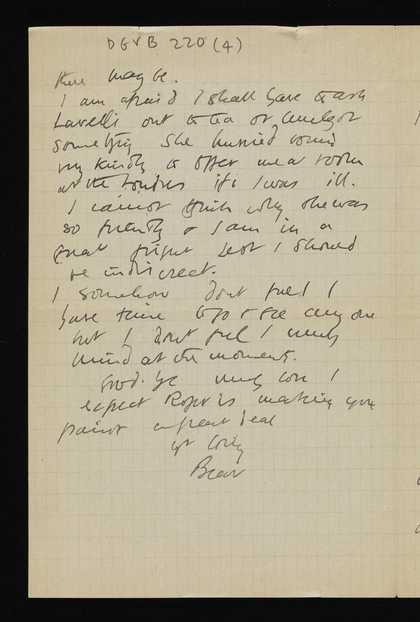 DGVB 220 (4)
there may be.
I am afraid I shall have to ask
out to tea or lunch or
something she hurried round
very kindly to offer me a room
at the Londres if I was ill.
I cannot think why she was
so friendly & I am in a
great fright lest I should
be indiscreet.
I somehow dont feel I
have time to go & see any one
but I dont feel I much
mind at the moment.
Good-bye much love I
expect Roger is making you
paint a great deal
yr loving
Bear